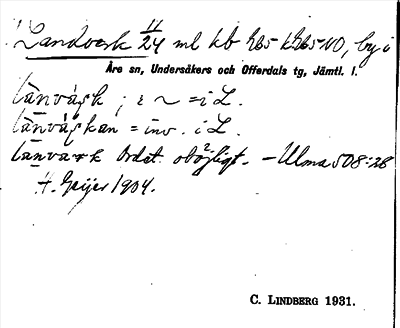 Landverk 11/24 ml kb h65 kh65 NO, by i
Åre sn, Undersåkers och Offerdals tg, Jämtl. l.
länvárk ; i ~ = i L.
länvárkan = inv. i L.
länvark Ordst. oböjligt. – Ulma 508:28
H. Geijer 1904.
C. LINDBERG 1931.